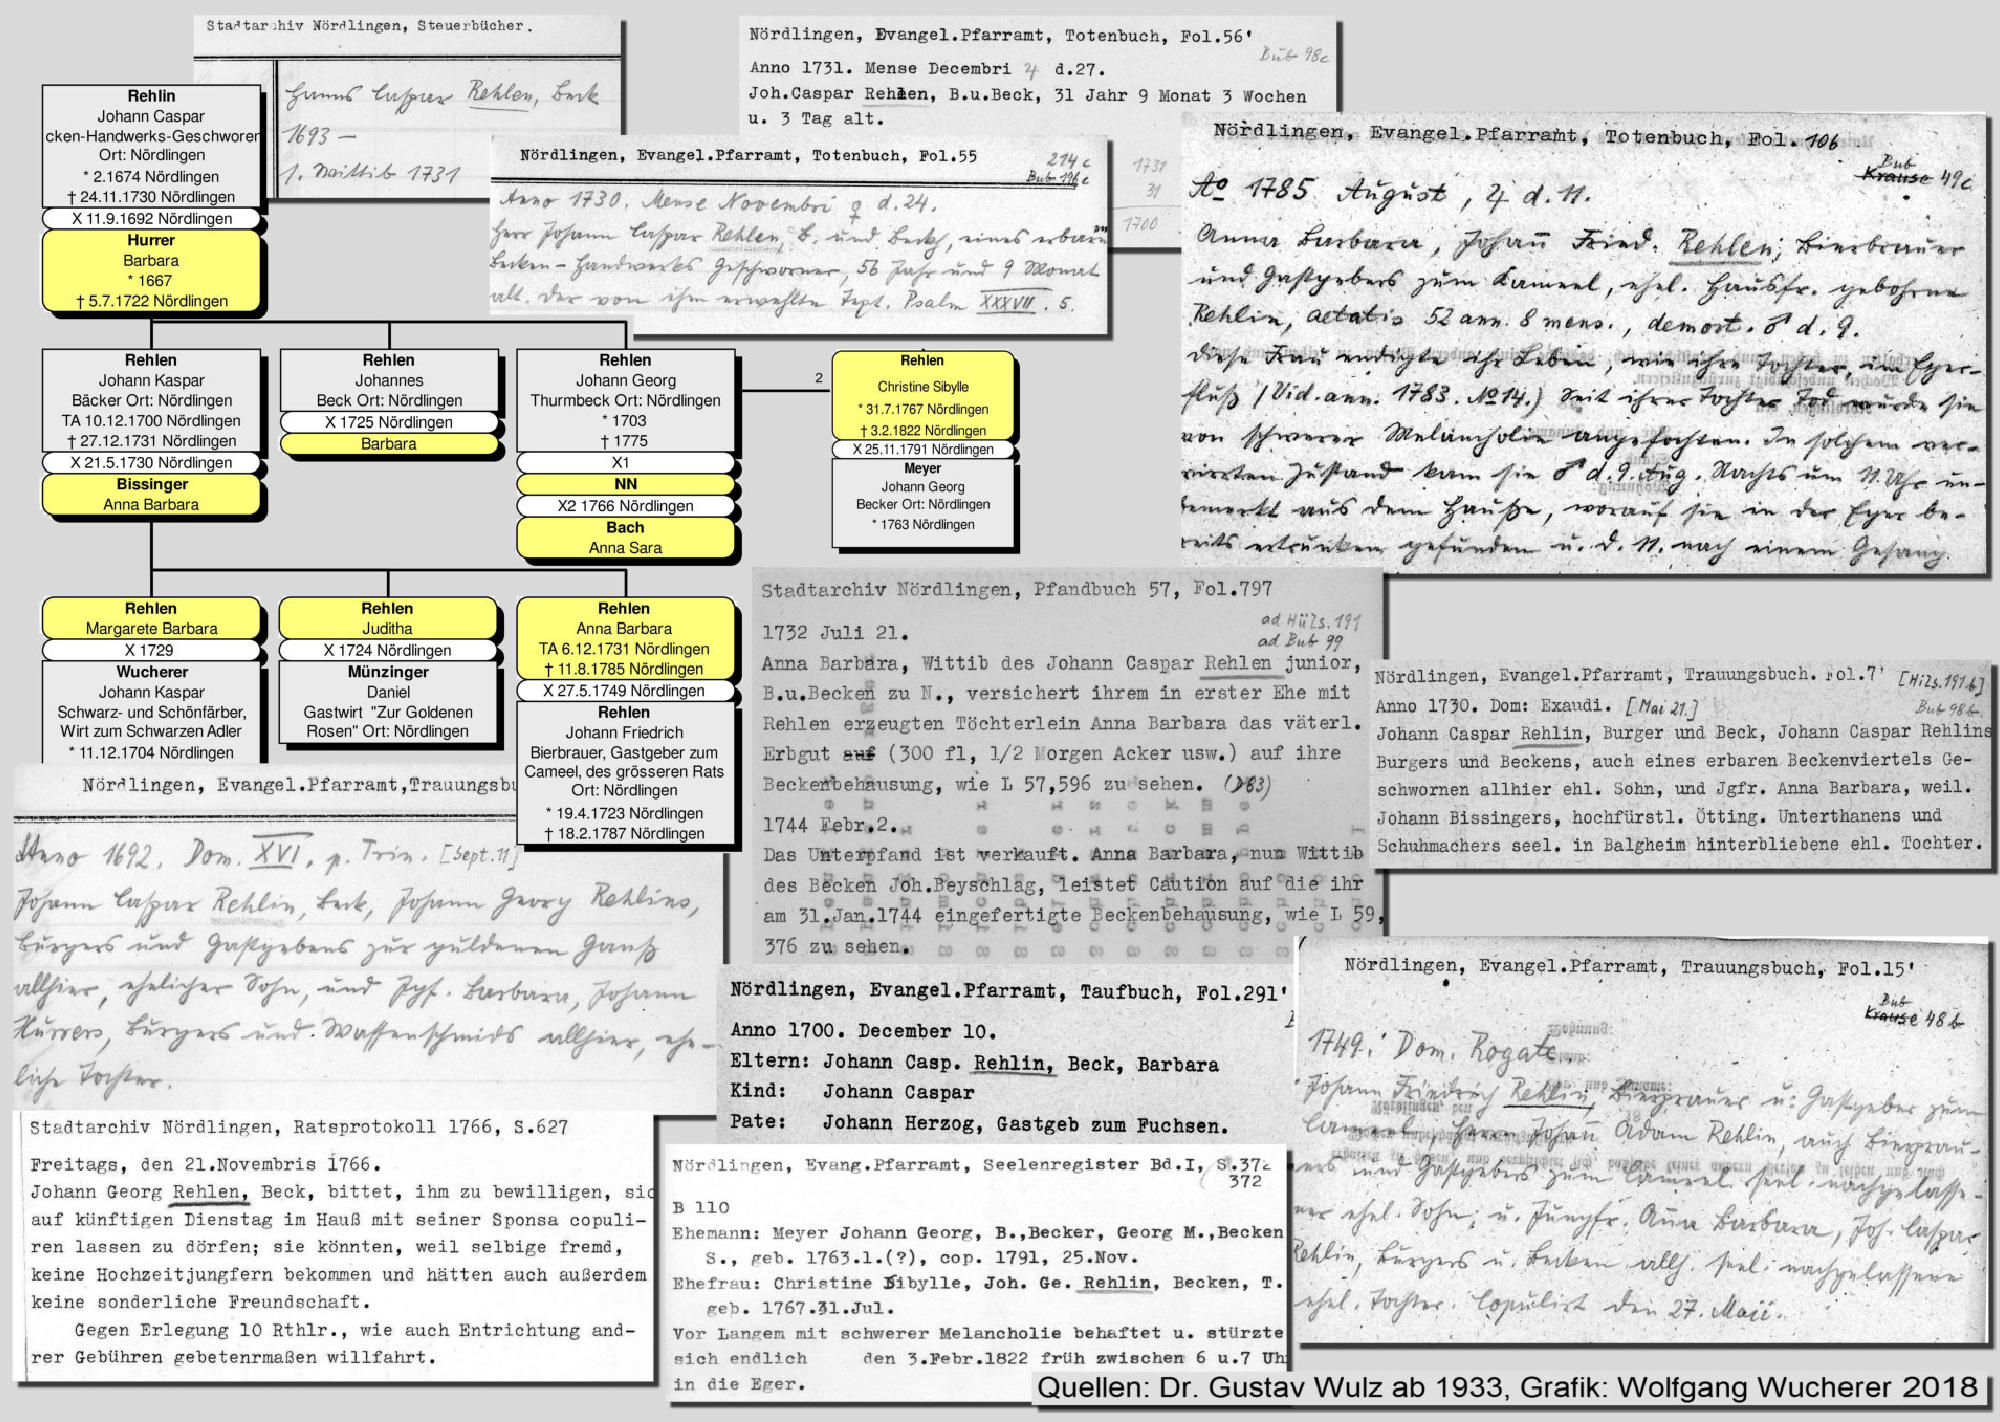 Stadtarchiv Nördlingen, Steuerbücher.
Hanns Caspar Rehlen, Beck
1693 —
1. Wittib 1731
Nördlingen, Evangel.Pfarramt, Totenbuch, Fol.56'
Bub 98c
Anno 1731. Mense Decembri ♃ d.27.
Joh.Caspar Rehlen, B.u.Beck, 31 Jahr 9 Monat 3 Wochen
u. 3 Tag alt.
1731
31
1700
Nördlingen, Evangel.Pfarramt, Totenbuch, Fol.55
214 c
Bub 196 c
Anno 1730. Mense Novembri ♀ d.24.
Herr Johann Caspar Rehlen, B. und Beckh, eines erbarn
Becken-Handwerks Geschworner, 56 Jahr und 9 Monat
alt. Der von ihm erwehlte Text. Psalm XXXVII. 5.
Nördlingen, Evangel.Pfarramt, Totenbuch, Fol. 106
Bub
Krause 49c
Aº 1785 August, ♃ d. 11.
Anna Barbara, Johañ Fried. Rehlen, Bierbrauer
und Gastgebers zum Kameel, ehel. Hausfr. gebohrne
Rehlin, aetatis 52 ann. 8 mens., demort. ♂ d. 9.
Diese Frau endigte ihr Leben, wie ihre Tochter, im Eger-
fluß (Vid. ann. 1783. No 14.) Seit ihrer Tochter Tod wurde sie
von schwerer Melancholie angefochten. In solchem ver-
wirrten Zustand kam sie ♂ d. 9. Aug. Nachts um 11 Uhr un-
bemerkt aus dem Hauße, worauf sie in der Eger be-
reits ertrunken gefunden u. d. 11. nach einem Gesang.
Rehlin
Johann Caspar
cken-Handwerks-Geschworen
Ort: Nördlingen
* 2.1674 Nördlingen
† 24.11.1730 Nördlingen
X 11.9.1692 Nördlingen
Hurrer
Barbara
* 1667
† 5.7.1722 Nördlingen
Rehlen
Johann Kaspar
Bäcker Ort: Nördlingen
TA 10.12.1700 Nördlingen
† 27.12.1731 Nördlingen
X 21.5.1730 Nördlingen
Bissinger
Anna Barbara
Rehlen
Johannes
Beck Ort: Nördlingen
X 1725 Nördlingen
Barbara
Rehlen
Johann Georg
Thurmbeck Ort: Nördlingen
* 1703
† 1775
X1
NN
X2 1766 Nördlingen
Bach
Anna Sara
2
Rehlen
Christine Sibylle
* 31.7.1767 Nördlingen
† 3.2.1822 Nördlingen
X 25.11.1791 Nördlingen
Meyer
Johann Georg
Becker Ort: Nördlingen
* 1763 Nördlingen
Rehlen
Margarete Barbara
X 1729
Wucherer
Johann Kaspar
Schwarz- und Schönfärber,
Wirt zum Schwarzen Adler
* 11.12.1704 Nördlingen
Rehlen
Juditha
X 1724 Nördlingen
Münzinger
Daniel
Gastwirt "Zur Goldenen
Rosen" Ort: Nördlingen
Rehlen
Anna Barbara
TA 6.12.1731 Nördlingen
† 11.8.1785 Nördlingen
X 27.5.1749 Nördlingen
Rehlen
Johann Friedrich
Bierbrauer, Gastgeber zum
Cameel, des grösseren Rats
Ort: Nördlingen
* 19.4.1723 Nördlingen
† 18.2.1787 Nördlingen
Stadtarchiv Nördlingen, Pfandbuch 57, Fol.797
ad Hüls. 191
ad Bub 99
1732 Juli 21.
Anna Barbara, Wittib des Johann Caspar Rehlen junior,
B.u.Becken zu N., versichert ihrem in erster Ehe mit
Rehlen erzeugten Töchterlein Anna Barbara das väterl.
Erbgut auf (300 fl, 1/2 Morgen Acker usw.) auf ihre
Beckenbehausung, wie L 57,596 zu sehen. (283)
1744 Febr.2.
Das Unterpfand ist verkauft. Anna Barbara, nun Wittib
des Becken Joh.Beyschlag, leistet Caution auf die ihr
am 31.Jan.1744 eingefertigte Beckenbehausung, wie L 59,
376 zu sehen.
Nördlingen, Evangel.Pfarramt, Trauungsbuch. Fol.7'
[Hils. 191 b]
Bub 98b
Anno 1730. Dom: Exaudi. [Mai 21.]
Johann Caspar Rehlin, Burger und Beck, Johann Caspar Rehlins
Burgers und Beckens, auch eines erbaren Beckenviertels Ge-
schwornen allhier ehl. Sohn, und Jgfr. Anna Barbara, weil.
Johann Bissingers, hochfürstl. Ötting. Unterthanens und
Schuhmachers seel. in Balgheim hinterbliebene ehl. Tochter.
Nördlingen, Evangel.Pfarramt,Trauungsbu
Anno 1692. Dom. XVI. p. Trin. [Sept. 11]
Johann Caspar Rehlin, Beck, Johann Georg Rehlins,
Burgers und Gastgebens zur guldenen Ganß
allhier, ehelicher Sohn, und Jgf. Barbara, Johann
Hurrers, Burgers und Waffenschmids allhier, ehe-
liche Tochter.
Nördlingen, Evangel.Pfarramt, Taufbuch, Fol.291'
Anno 1700. December 10.
Eltern: Johann Casp. Rehlin, Beck, Barbara
Kind: Johann Caspar
Pate: Johann Herzog, Gastgeb zum Fuchsen.
Nördlingen, Evangel.Pfarramt, Trauungsbuch, Fol.15'
Bub
Krause 48 b
1749. Dom. Rogate,
Johann Friedrich Rehlin, Bierprauer u. Gastgeber zum
Cameel, Herrn Johañ Adam Rehlin, auch Bierprau-
ers und Gastgebers zum Cameel seel. nachgelasse-
ner ehel. Sohn, u. Jungfr. Aña Barbara, Joh. Caspar
Rehlin, Burgers u. Becken allh. seel. nachgelassene
ehel. Tochter. Copulirt den 27. Maii.
Stadtarchiv Nördlingen, Ratsprotokoll 1766, S.627
Freitags, den 21.Novembris 1766.
Johann Georg Rehlen, Beck, bittet, ihm zu bewilligen, sic
auf künftigen Dienstag im Hauß mit seiner Sponsa copuli-
ren lassen zu dörfen; sie könnten, weil selbige fremd,
keine Hochzeitjungfern bekommen und hätten auch außerdem
keine sonderliche Freundschaft.
Gegen Erlegung 10 Rthlr., wie auch Entrichtung and-
rer Gebühren gebetenrmaßen willfahrt.
Nördlingen, Evang.Pfarramt, Seelenregister Bd.I, S.372
372
B 110
Ehemann: Meyer Johann Georg, B.,Becker, Georg M.,Becken
S., geb. 1763.1.(?), cop. 1791, 25.Nov.
Ehefrau: Christine Sibylle, Joh. Ge. Rehlin, Becken, T.
geb. 1767.31.Jul.
Vor Langem mit schwerer Melancholie behaftet u. stürzte
sich endlich den 3.Febr.1822 früh zwischen 6 u.7 Uh
in die Eger.
Quellen: Dr. Gustav Wulz ab 1933, Grafik: Wolfgang Wucherer 2018